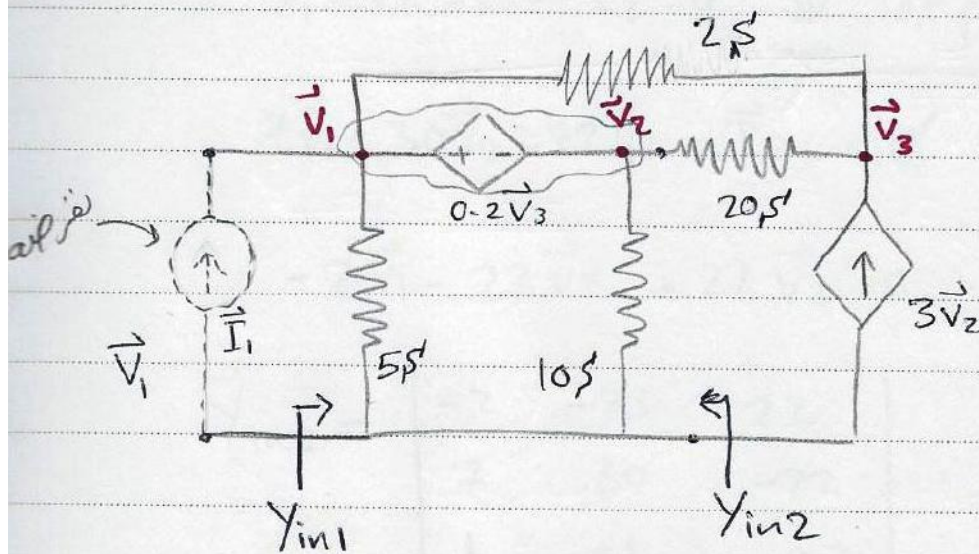 2S
V⃗1
V⃗2
V⃗3
+ -
0.2V⃗3
20S
I⃗1
V⃗1
5S
10S
3V⃗2
Yin1
Yin2